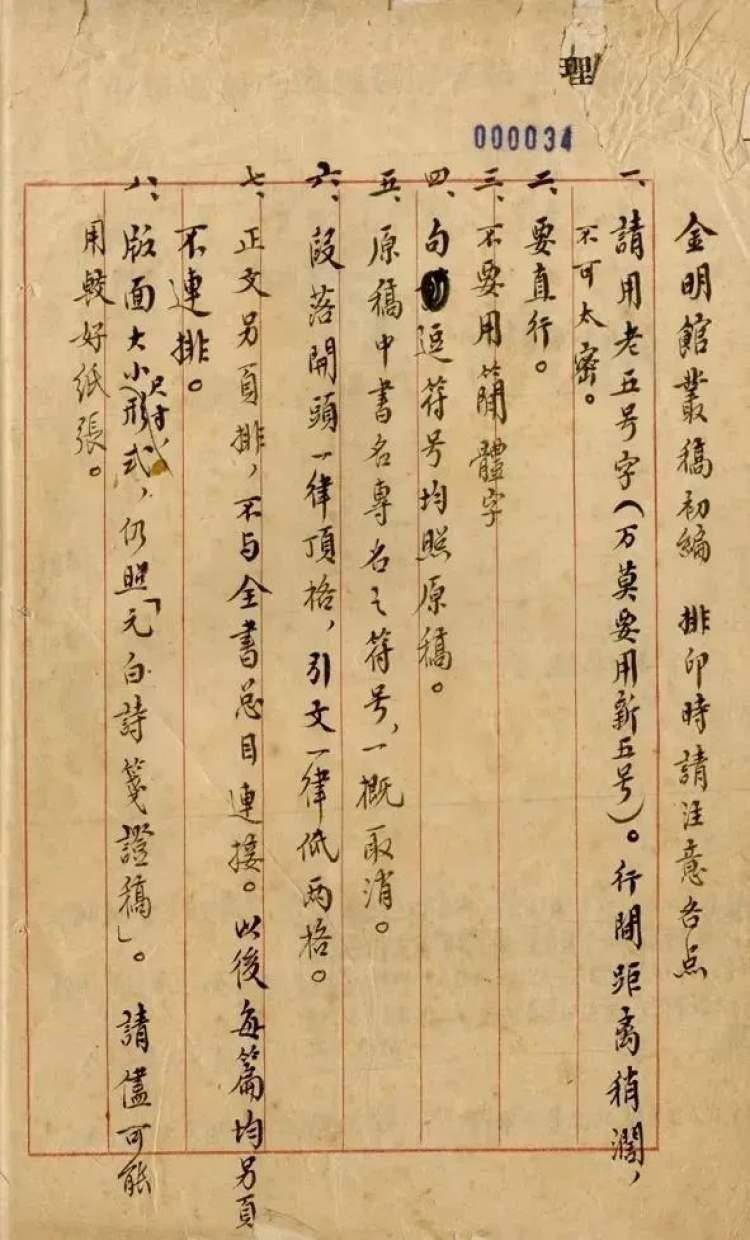 理
000034
金明館叢稿初編　排印時請注意各点
一、請用老五号字（万莫要用新五号）。行間距离稍濶，
不可太密。
二、要直行。
三、不要用簡體字
四、句逗符号均照原稿。
五、原稿中書名專名之符号，一概取消。
六、段落開頭一律頂格，引文一律低兩格。
七、正文另頁排，不与全書总目連接。以後每篇均另頁
不連排。
八、版面大小，尺寸，形式，仍照「元白詩箋證稿」。請儘可能
用較好紙張。